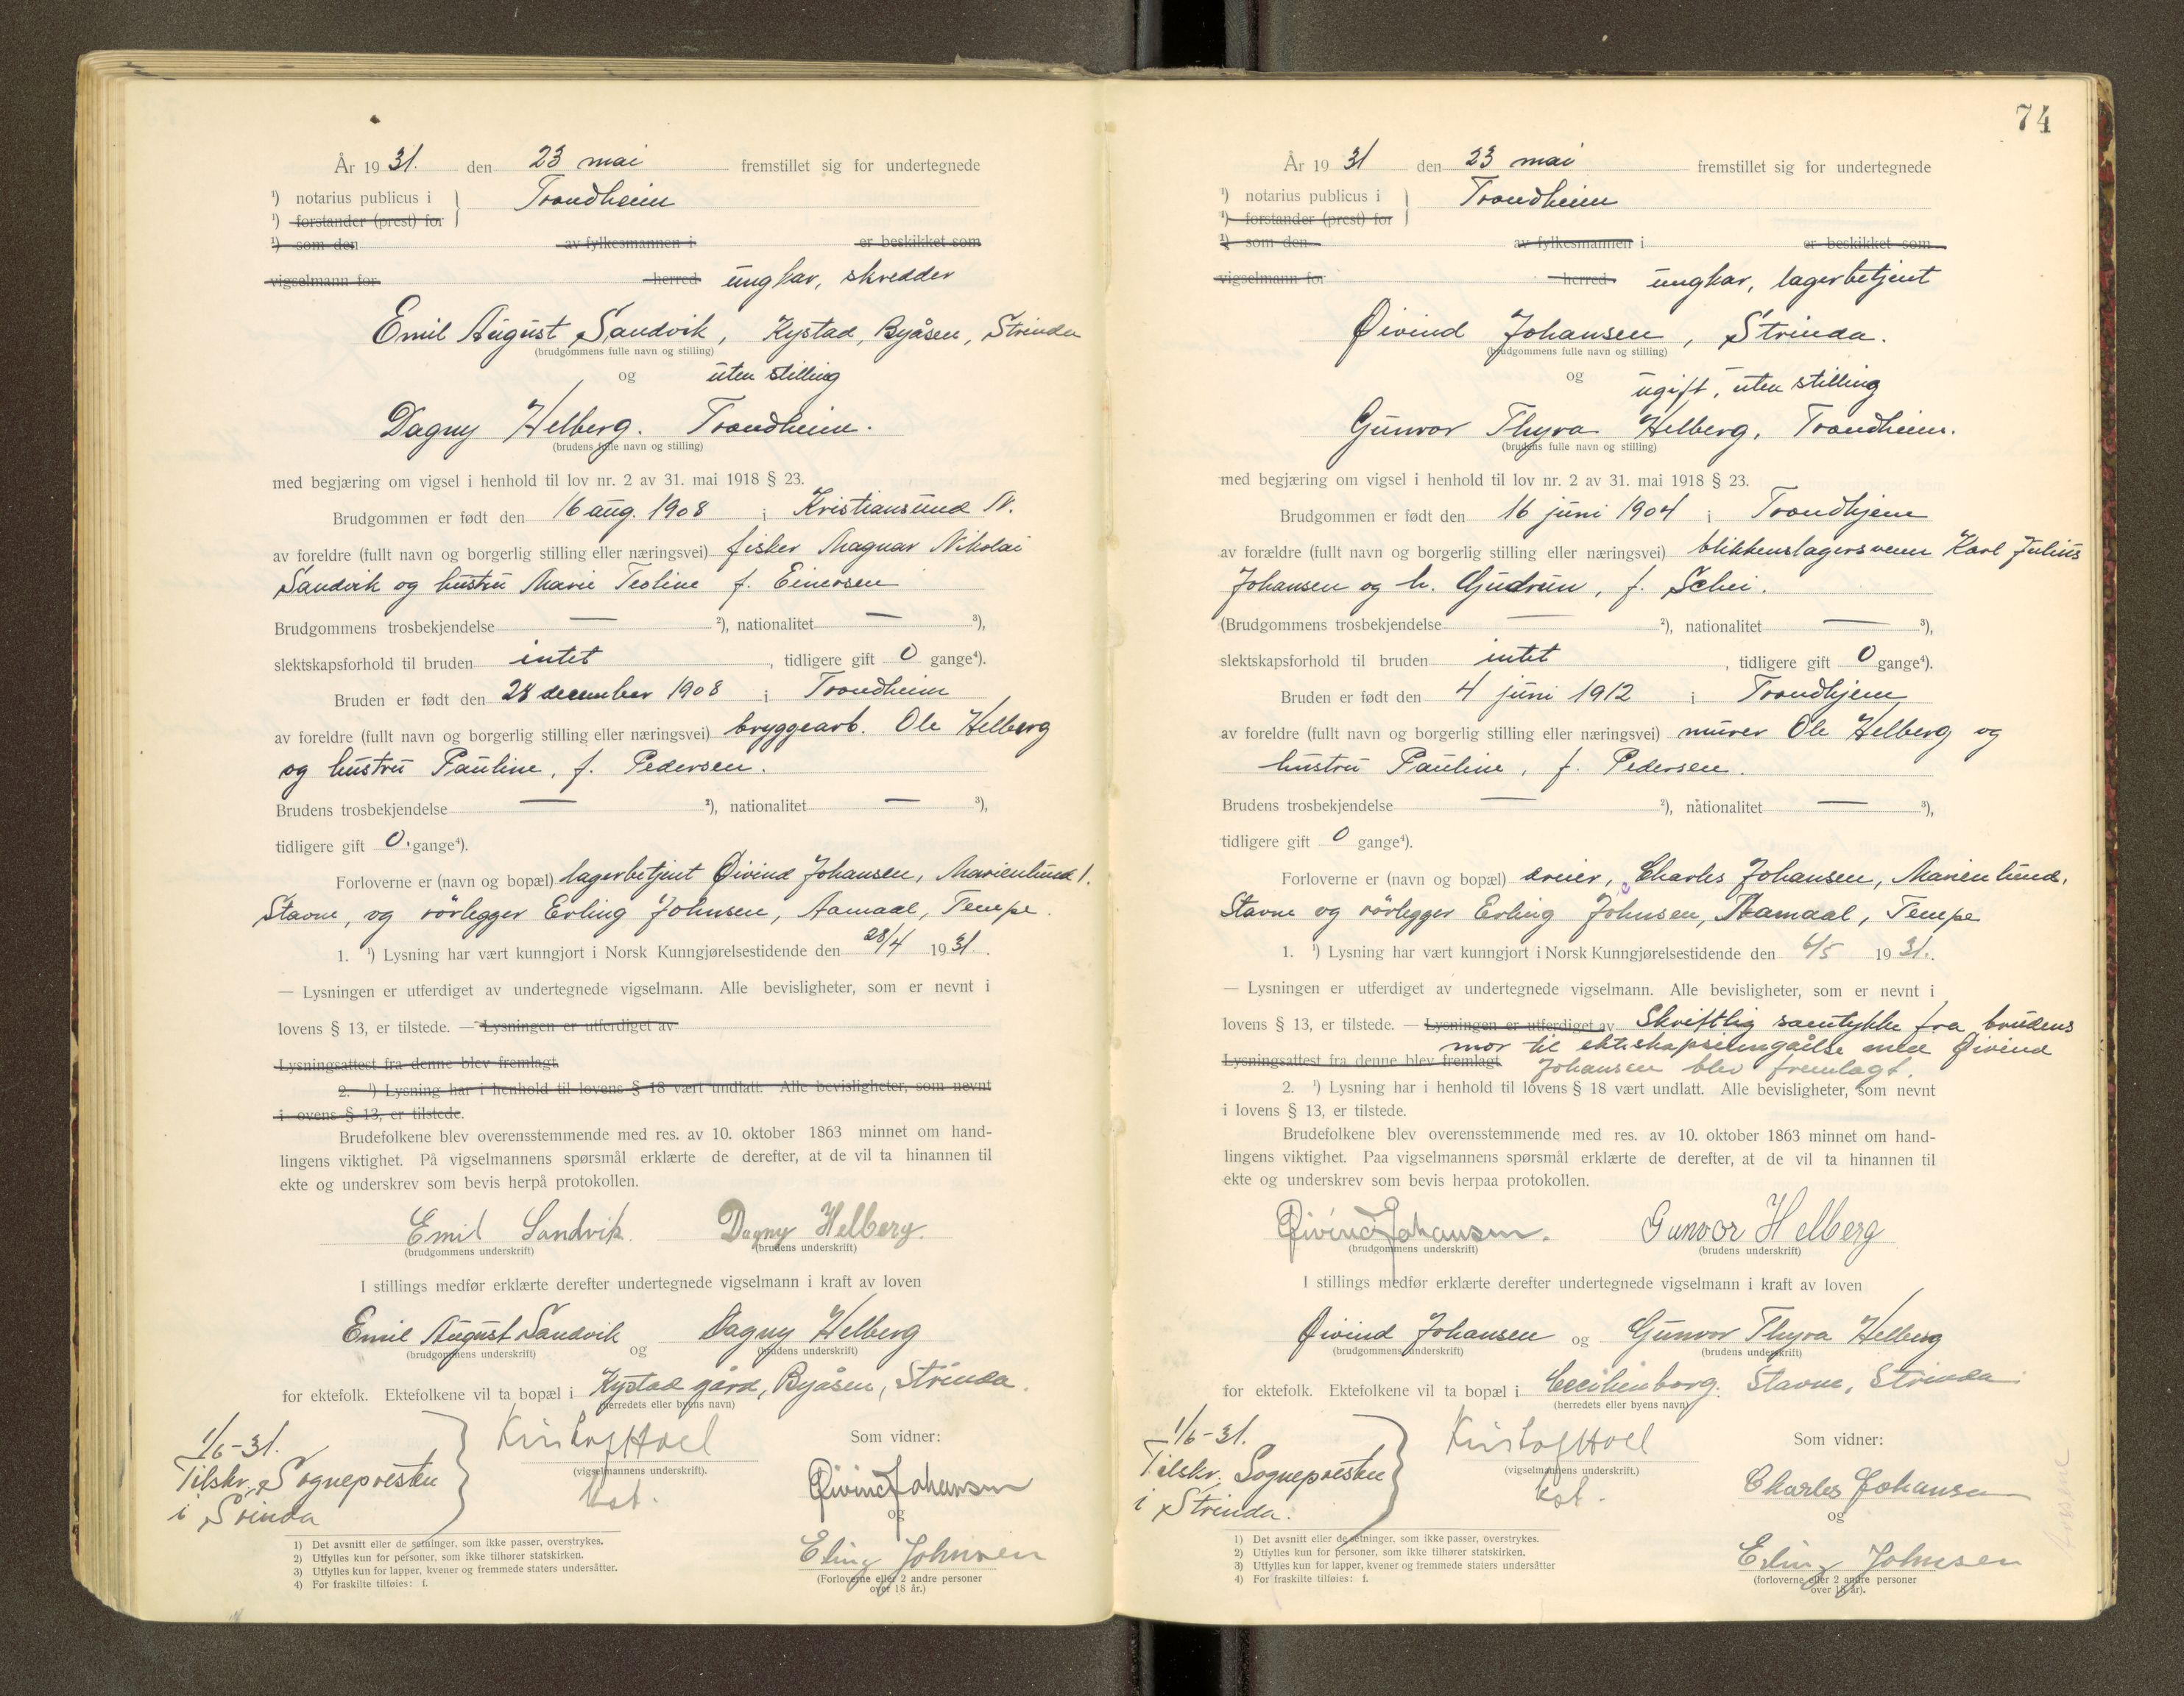 År 19 31. den 23 mai fremstillet sig for undertegnede
¹) notarius publicus i } Trondheim
¹) forstander (prest) for
¹) som den av fylkesmannen i er beskikket som
vigselmann for herred ungkar, skredder
Emil August Sandvik, Kystad, Byåsen, Strinda
(brudgommens fulle navn og stilling)
og uten stilling
Dagny Helberg. Trondheim.
(brudens fulle navn og stilling)
med begjæring om vigsel i henhold til lov nr. 2 av 31. mai 1918 § 23.
Brudgommen er født den 16 aug. 1908 i Kristiansund N.
av foreldre (fullt navn og borgerlig stilling eller næringsvei) fisker Magnar Nikolai
Sandvik og hustru Marie Teoline f. Einersen
Brudgommens trosbekjendelse — ²), nationalitet — ³),
slektskapsforhold til bruden intet, tidligere gift 0 gange⁴).
Bruden er født den 28 december 1908 i Trondheim
av foreldre (fullt navn og borgerlig stilling eller næringsvei) bryggearb. Ole Helberg
og hustru Pauline, f. Pedersen.
Brudens trosbekjendelse — ²), nationalitet — ³),
tidligere gift 0. gange⁴).
Forloverne er (navn og bopæl) lagerbetjent Øivind Johansen, Marienlund 1.
Stavne, og rørlegger Erling Johnsen, Aamaal, Tempe.
1. ¹) Lysning har vært kunngjort i Norsk Kunngjørelsestidende den 28/4 1931.
— Lysningen er utferdiget av undertegnede vigselmann. Alle bevisligheter, som er nevnt i
lovens § 13, er tilstede. — Lysningen er utferdiget av
Lysningsattest fra denne blev fremlagt
2. ¹) Lysning har i henhold til lovens § 18 vært undlatt. Alle bevisligheter, som nevnt
i lovens § 13, er tilstede.
Brudefolkene blev overensstemmende med res. av 10. oktober 1863 minnet om hand-
lingens viktighet. På vigselmannens spørsmål erklærte de derefter, at de vil ta hinannen til
ekte og underskrev som bevis herpå protokollen.
Emil Sandvik. Dagny Helberg.
(brudgommens underskrift) (brudens underskrift)
I stillings medfør erklærte derefter undertegnede vigselmann i kraft av loven
Emil August Sandvik og Dagny Helberg
(brudgommens underskrift) (brudens underskrift)
for ektefolk. Ektefolkene vil ta bopæl i Kystad gård, Byåsen, Strinda.
(herredets eller byens navn)
1/6-31.
Tilskr. Sognepresten
i Srinda
Kristof Hoel
(vigselmannens underskrift).
kst.
Som vidner:
Øivind Johansen
og
Erling Johnsen
(Forloverne eller 2 andre personer
over 18 år.)
1) Det avsnitt eller de setninger, som ikke passer, overstrykes.
2) Utfylles kun for personer, som ikke tilhører statskirken.
3) Utfylles kun for lapper, kvener og fremmede staters undersåtter.
4) For fraskilte tilføies: f.
74
År 19 31 den 23 mai fremstillet sig for undertegnede
¹) notarius publicus i } Trondheim
¹) forstander (prest) for
¹) som den av fylkesmannen i er beskikket som
vigselmann for herred ungkar, lagerbetjent
Øivind Johansen, Strinda.
(brudgommens fulle navn og stilling)
og ugift, uten stilling
Gunvor Thyra Helberg, Trondheim.
(brudens fulle navn og stilling)
med begjæring om vigsel i henhold til lov nr. 2 av 31. mai 1918 § 23.
Brudgommen er født den 16 juni 1904 i Trondhjem
av forældre (fullt navn og borgerlig stilling eller næringsvei) blikkenslagersvenn Karl Julius
Johansen og h. Gudrun, f. Schei.
(Brudgommens trosbekjendelse — ²), nationalitet — ³),
slektskapsforhold til bruden intet, tidligere gift 0 gange⁴).
Bruden er født den 4 juni 1912 i Trondhjem
av foreldre (fullt navn og borgerlig stilling eller næringsvei) murer Ole Helberg og
hustru Pauline, f. Pedersen.
Brudens trosbekjendelse — ²), nationalitet — ³),
tidligere gift 0 gange⁴).
Forloverne er (navn og bopæl) dreier, Charles Johansen, Marienlund,
Stavne og rørlegger Erling Johnsen, Aamaal, Tempe
1. ¹) Lysning har vært kunngjort i Norsk Kunngjørelsestidende den 6/5 1931.
— Lysningen er utferdiget av undertegnede vigselmann. Alle bevisligheter, som er nevnt i
lovens § 13, er tilstede. — Lysningen er utferdiget av Skriftlig samtykke fra brudens
Lysningsattest fra denne blev fremlagt. mor til ekteskapsinngåelse med Øivind
Johansen blev fremlagt.
2. ¹) Lysning har i henhold til lovens § 18 vært undlatt. Alle bevisligheter, som nevnt
i lovens § 13, er tilstede.
Brudefolkene blev overensstemmende med res. av 10. oktober 1863 minnet om hand-
lingens viktighet. Paa vigselmannens spørsmål erklærte de derefter, at de vil ta hinannen til
ekte og underskrev som bevis herpaa protokollen.
Øivind Johansen. Gunvor Helberg
(brudgommens underskrift) (brudens underskrift)
I stillings medfør erklærte derefter undertegnede vigselmann i kraft av loven
Øivind Johansen og Gunvor Thyra Helberg
(brudgommens underskrift) (brudens underskrift)
for ektefolk. Ektefolkene vil ta bopæl i Cecilienborg. Stavne, Strinda.
(herredets eller byens navn)
1/6-31.
Tilskr. Sognepresten
i Strinda.
Kristof Hoel
(vigselmannens underskrift.)
kst.
Som vidner:
Charles Johansen
og
Erling Johnsen
(forloverne eller 2 andre personer
over 18 år).
1) Det avsnitt eller de setninger, som ikke passer, overstrykes.
2) Utfylles kun for personer, som ikke tilhører statskirken.
3) Utfylles kun for lapper, kvener og fremmede staters undersåtter
4) For fraskilte tilføies: f.